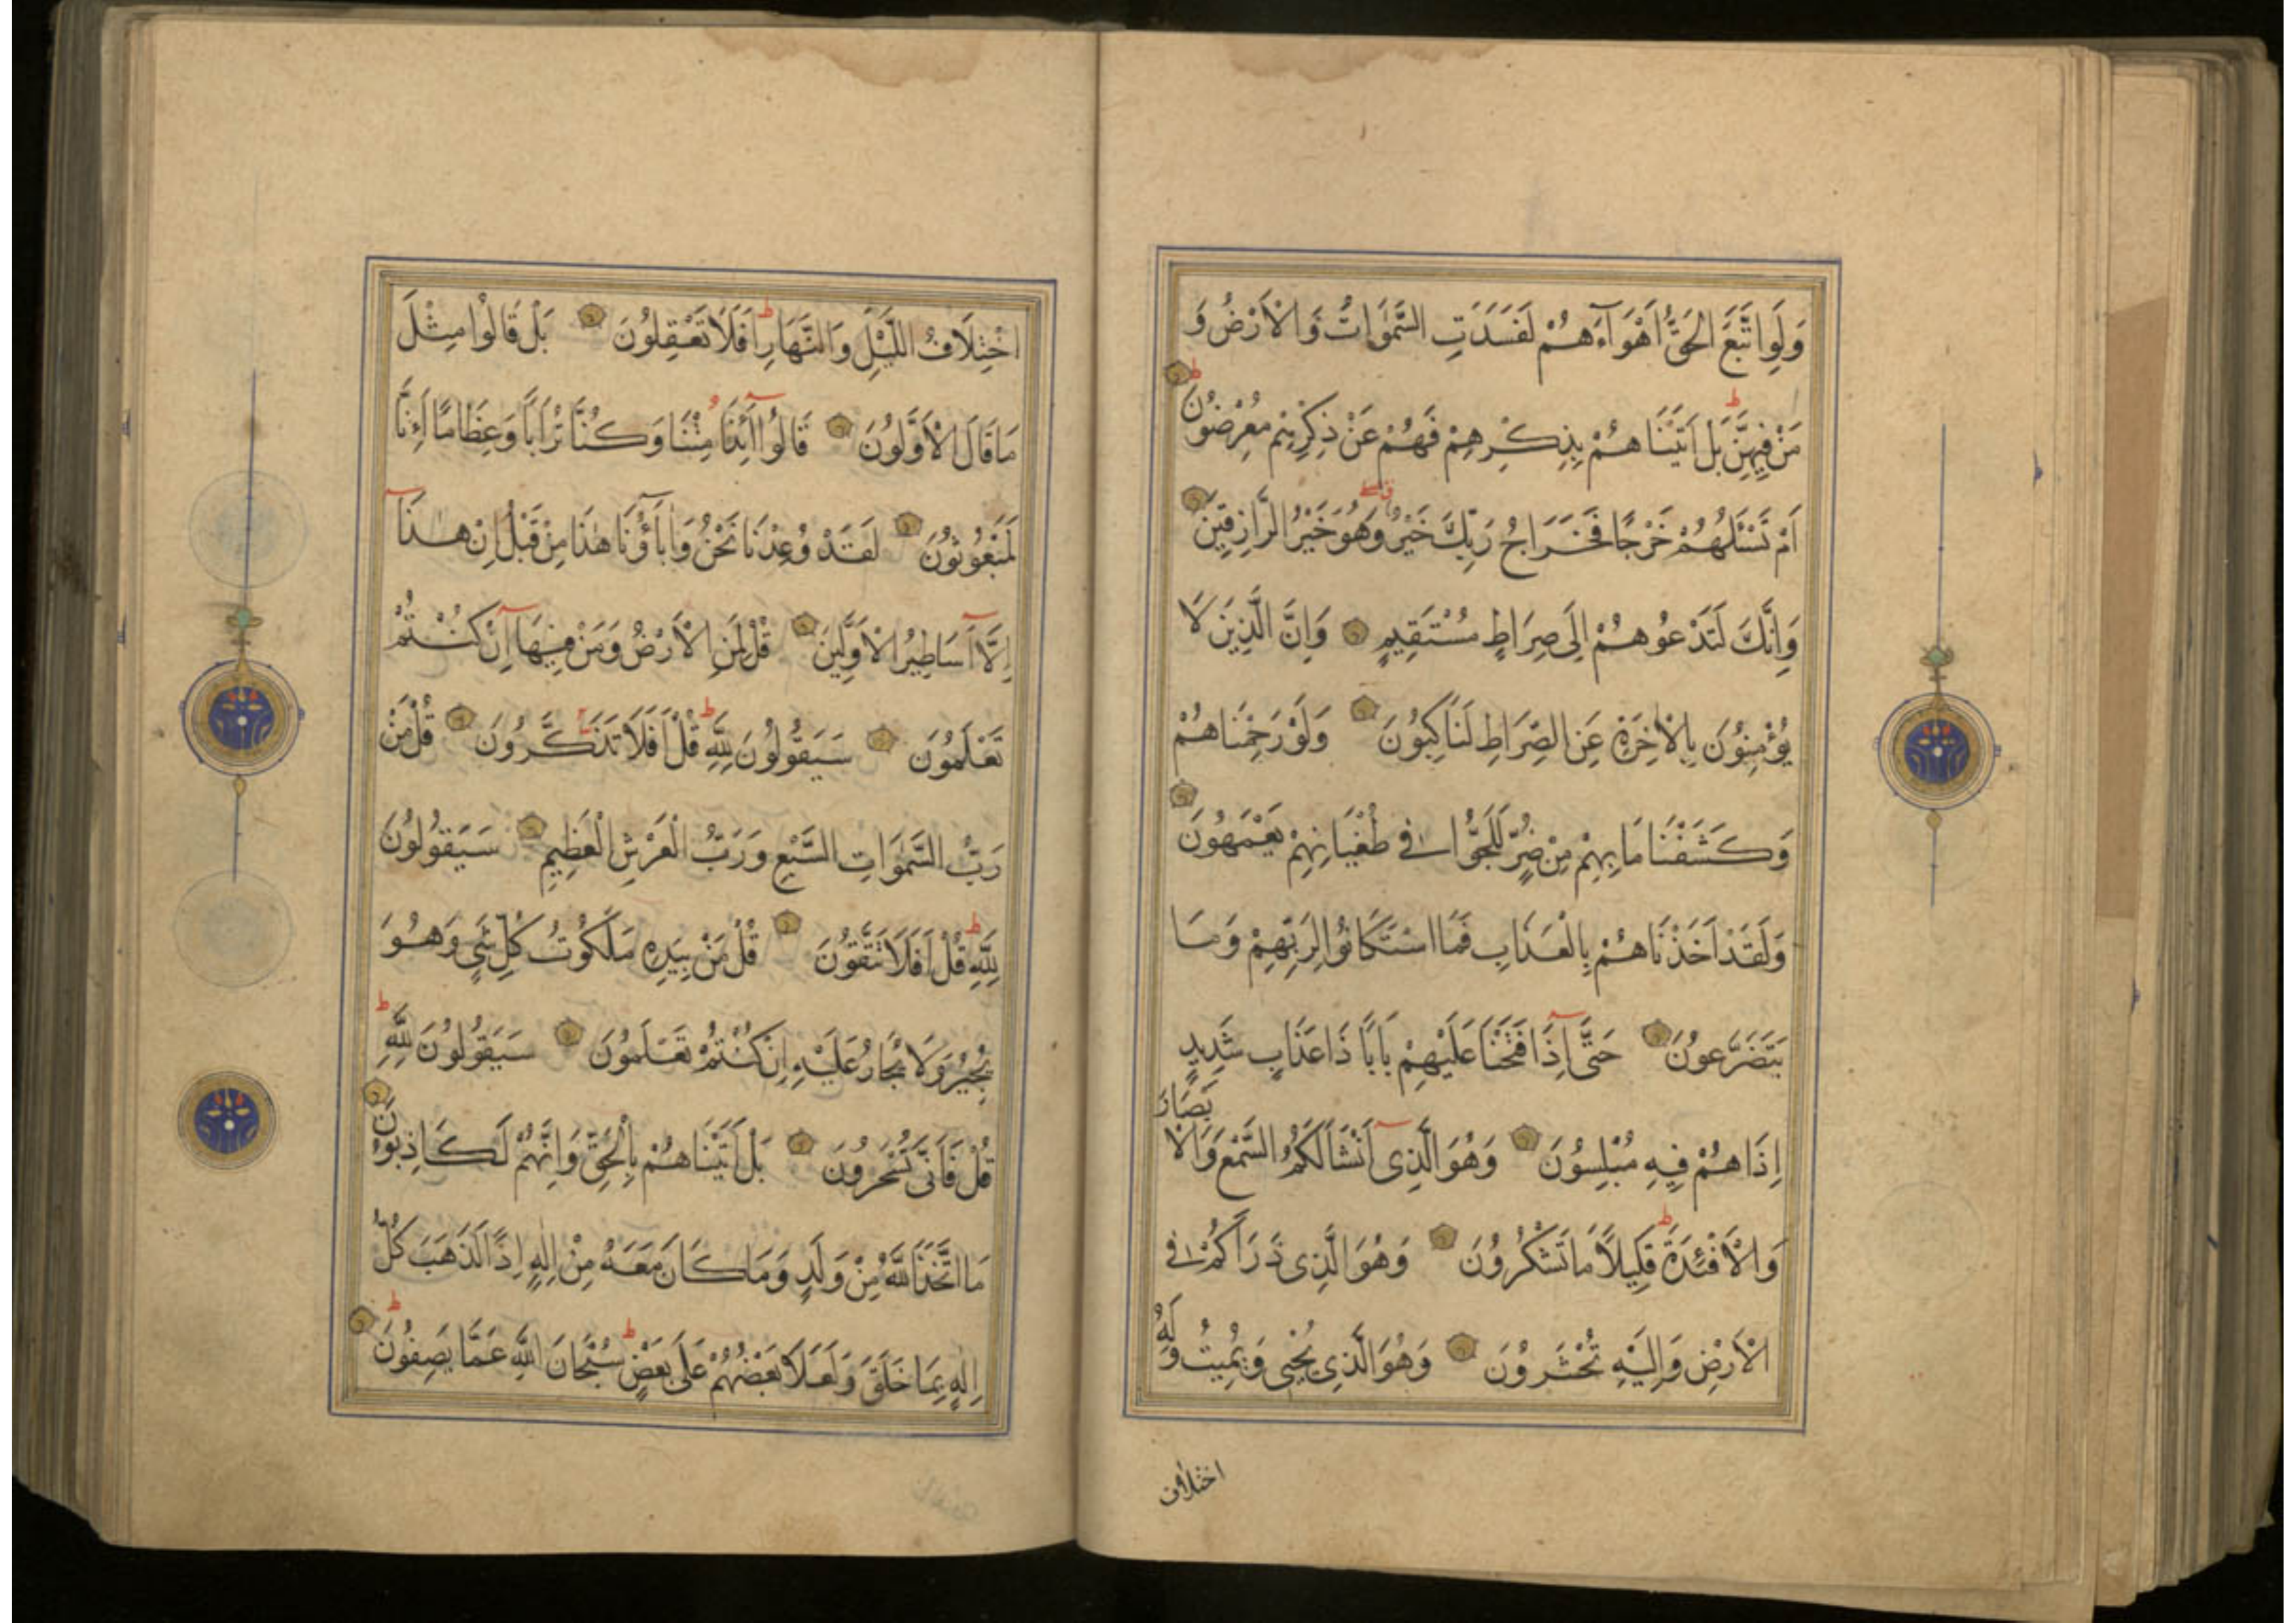 وَلَوِ اتَّبَعَ الْحَقُّ اَهْوَآءَهُمْ لَفَسَدَتِ السَّمٰوَاتُ وَالْاَرْضُ وَ
مَنْ فِيهِنَّ بَلْ اَتَيْنَاهُمْ بِذِكْرِهِمْ فَهُمْ عَنْ ذِكْرِهِمْ مُعْرِضُونَ
اَمْ تَسْئَلُهُمْ خَرْجًا فَخَرَاجُ رَبِّكَ خَيْرٌ وَهُوَ خَيْرُ الرَّازِقِينَ
وَاِنَّكَ لَتَدْعُوهُمْ اِلَى صِرَاطٍ مُسْتَقِيمٍ وَاِنَّ الَّذِينَ لَا
يُؤْمِنُونَ بِالْاٰخِرَةِ عَنِ الصِّرَاطِ لَنَاكِبُونَ وَلَوْ رَحِمْنَاهُمْ
وَكَشَفْنَا مَا بِهِمْ مِنْ ضُرٍّ لَلَجُّوا فِى طُغْيَانِهِمْ يَعْمَهُونَ
وَلَقَدْ اَخَذْنَاهُمْ بِالْعَذَابِ فَمَا اسْتَكَانُوا لِرَبِّهِمْ وَمَا
يَتَضَرَّعُونَ حَتَّى اِذَا فَتَحْنَا عَلَيْهِمْ بَابًا ذَا عَذَابٍ شَدِيدٍ
اِذَا هُمْ فِيهِ مُبْلِسُونَ وَهُوَ الَّذِى اَنْشَاَ لَكُمُ السَّمْعَ وَالْاَبْصَارَ
وَالْاَفْئِدَةَ قَلِيلًا مَا تَشْكُرُونَ وَهُوَ الَّذِى ذَرَاَكُمْ فِى
الْاَرْضِ وَاِلَيْهِ تُحْشَرُونَ وَهُوَ الَّذِى يُحْيِى وَيُمِيتُ وَلَهُ
اختلاف
اخْتِلَافُ اللَّيْلِ وَالنَّهَارِ اَفَلَا تَعْقِلُونَ بَلْ قَالُوا مِثْلَ
مَا قَالَ الْاَوَّلُونَ قَالُوا اَئِذَا مِتْنَا وَكُنَّا تُرَابًا وَعِظَامًا اَءِنَّا
لَمَبْعُوثُونَ لَقَدْ وُعِدْنَا نَحْنُ وَاٰبَآؤُنَا هٰذَا مِنْ قَبْلُ اِنْ هٰذَا
اِلَّا اَسَاطِيرُ الْاَوَّلِينَ قُلْ لِمَنِ الْاَرْضُ وَمَنْ فِيهَا اِنْ كُنْتُمْ
تَعْلَمُونَ سَيَقُولُونَ لِلّٰهِ قُلْ اَفَلَا تَذَكَّرُونَ قُلْ مَنْ
رَبُّ السَّمٰوَاتِ السَّبْعِ وَرَبُّ الْعَرْشِ الْعَظِيمِ سَيَقُولُونَ
لِلّٰهِ قُلْ اَفَلَا تَتَّقُونَ قُلْ مَنْ بِيَدِهِ مَلَكُوتُ كُلِّ شَىْءٍ وَهُوَ
يُجِيرُ وَلَا يُجَارُ عَلَيْهِ اِنْ كُنْتُمْ تَعْلَمُونَ سَيَقُولُونَ لِلّٰهِ
قُلْ فَاَنَّى تُسْحَرُونَ بَلْ اَتَيْنَاهُمْ بِالْحَقِّ وَاِنَّهُمْ لَكَاذِبُونَ
مَا اتَّخَذَ اللّٰهُ مِنْ وَلَدٍ وَمَا كَانَ مَعَهُ مِنْ اِلٰهٍ اِذًا لَذَهَبَ كُلُّ
اِلٰهٍ بِمَا خَلَقَ وَلَعَلَا بَعْضُهُمْ عَلَى بَعْضٍ سُبْحَانَ اللّٰهِ عَمَّا يَصِفُونَ